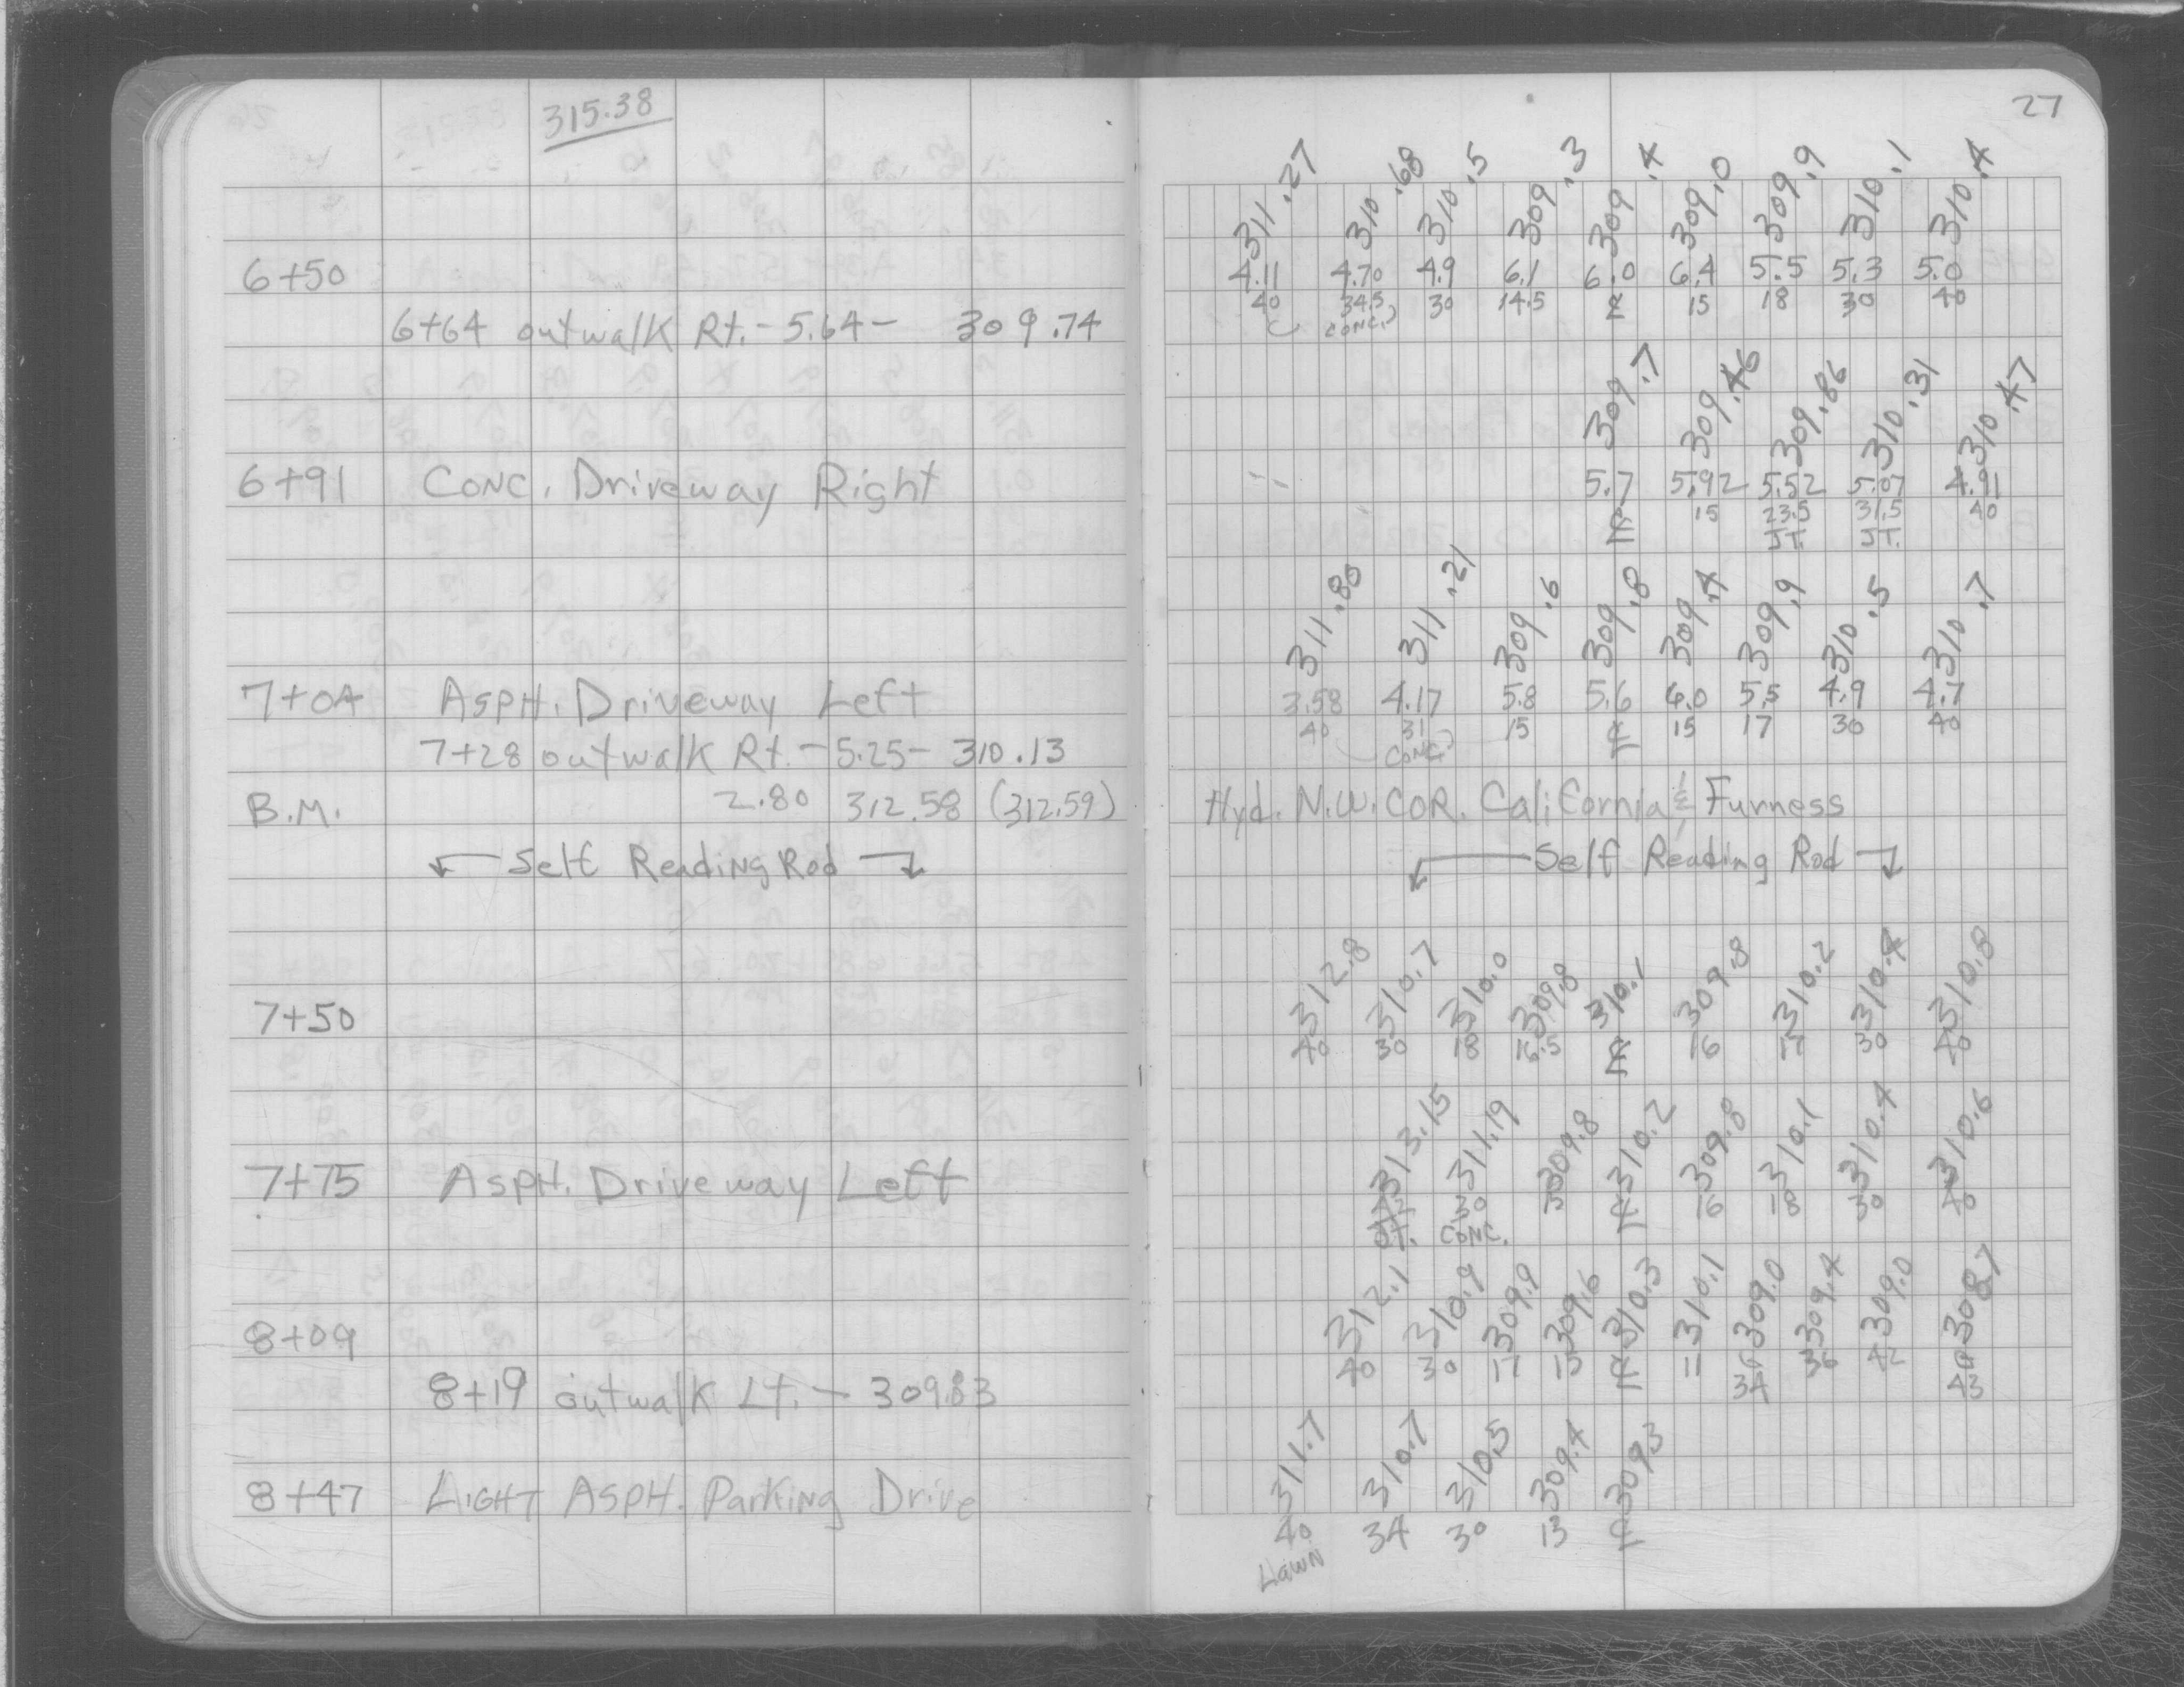 315.38
6+50
6+64 outwalk Rt. - 5.64 - 309.74
6+91 CONC. Driveway Right
7+04 ASPH. Driveway Left
7+28 outwalk Rt. - 5.25 - 310.13
B.M. 2.80 312.58 (312.59)
Self Reading Rod
7+50
7+75 ASPH. Driveway Left
8+09
8+19 outwalk Lt. - 309.83
8+47 LIGHT ASPH. Parking Drive
27
311.27 310.68 310.5 309.3 309.4 309.0 309.9 310.1 310.4
4.11 4.70 4.9 6.1 6.0 6.4 5.5 5.3 5.0
40 34.5 30 14.5 ℄ 15 18 30 40
CONC.
309.7 309.46 309.86 310.31 310.47
5.7 5.92 5.52 5.07 4.91
℄ 15 23.5 31.5 40
JT. JT.
311.80 311.21 309.6 309.8 309.4 309.9 310.5 310.7
3.58 4.17 5.8 5.6 6.0 5.5 4.9 4.7
40 31 15 ℄ 15 17 30 40
CONC.
Hyd. N.W. COR. California & Furness
Self Reading Rod
312.8 310.7 310.0 309.8 310.1 309.8 310.2 310.4 310.8
40 30 18 16.5 ℄ 16 17 30 40
313.15 311.19 309.8 310.2 309.8 310.1 310.4 310.6
30 15 ℄ 16 18 30 40
JT. CONC.
312.1 310.9 309.9 309.6 310.3 310.1 309.0 309.4 309.0 308.7
40 30 17 15 ℄ 11 34 36 42 43
311.7 310.7 310.5 309.4 309.3
40 34 30 13 ℄
Lawn